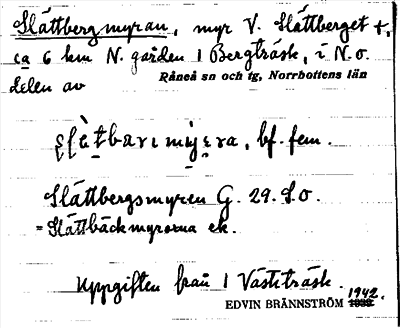 Slåttbergmyran, myr V. Slåttberget +,
ca 6 km N. gården 1 Bergträsk, i N.o.
delen av Råneå sn och tg, Norrbottens län
bf. fem.
Slåttbergsmyren G. 29. S.o.
= Slåttbäckmyrorna ek.
Uppgiften från 1 Västiträsk.
EDVIN BRÄNNSTRÖM 1942.